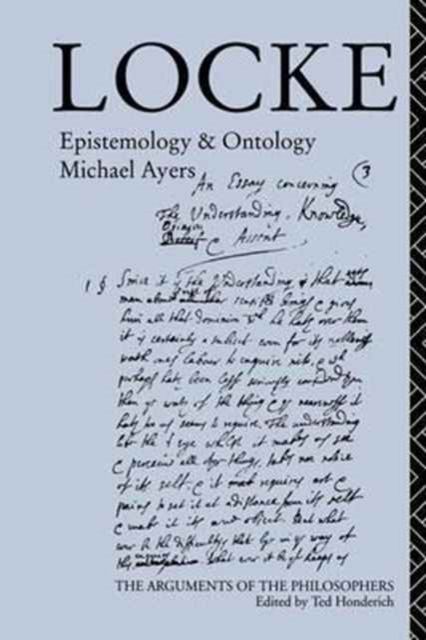 LOCKE
Epistemology & Ontology
Michael Ayers
An Essay concerning 3
The Understanding, Knowledge,
Opinion
& Assent
1 § Since it is the Understanding that
man above sensible beings & gives
him all that dominion he hath over them
it is certainly a subject even for its nobleness
worth our labour to enquire into,
perhaps hath been less seriously considered
then
to require. The understanding
like the eye whilst it makes us see
& perceive all other things, takes noe notice
of its self & it requires art &
pains to set it at a distance from its self
& make it its owne object. But what
ever be the difficultys that lye in the way of
this What ever it be that keeps us
THE ARGUMENTS OF THE PHILOSOPHERS
Edited by Ted Honderich